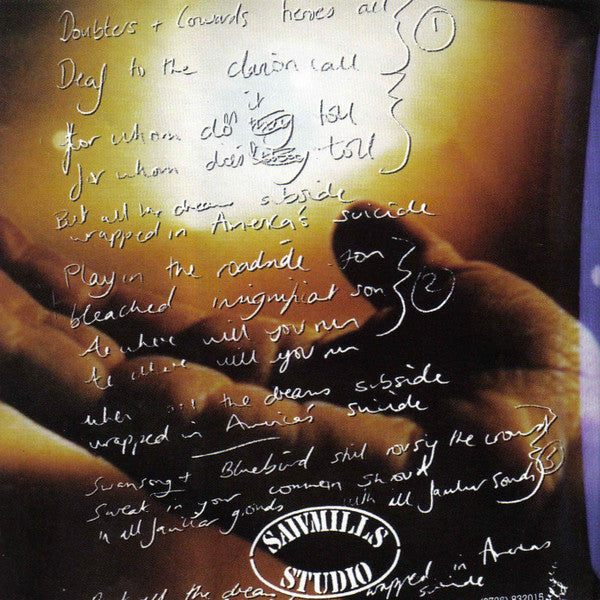 Doubters + Cowards heroes all
1
Deaf to the clarion call
it
for whom do toll
for whom does toll
But all the dreams subside
wrapped in America's suicide
Play in the roadside son
bleached insignifiant son
2
So where will you run
So where will you run
when all the dreams subside
wrapped in America's suicide
Swansong + Bluebird still the crowd
3
Sweat in your common shroud
in all familiar grounds with all familiar sounds
SAWMILLS
STUDIO
But all the dreams wrapped in Americas
suicide
832015